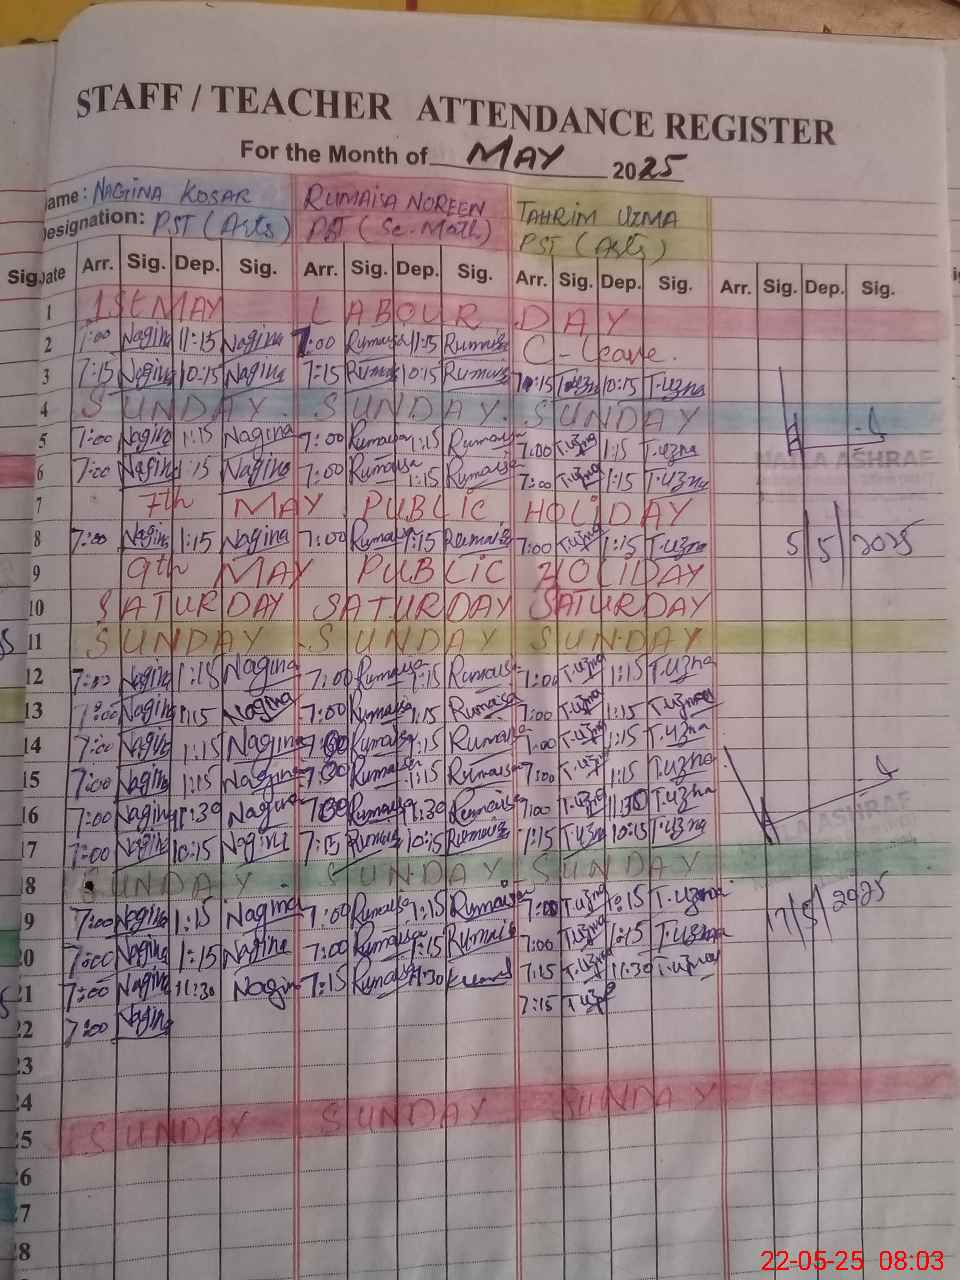 STAFF / TEACHER ATTENDANCE REGISTER
For the Month of MAY 2025
ame: NAGINA KOSAR RUMAISA NOREEN TAHRIM UZMA
Designation: PST (Arts) PST (Sc-Math) PST (Arts)
Sig. Date Arr. Sig. Dep. Sig. Arr. Sig. Dep. Sig. Arr. Sig. Dep. Sig. Arr. Sig. Dep. Sig.
1 1st MAY LABOUR DAY
2 7:00 Nagina 11:15 Nagina 7:00 Rumaisa 11:15 Rumaisa C-leave.
3 7:15 Nagina 10:15 Nagina 7:15 Rumaisa 10:15 Rumaisa 7:15 T.uzma 10:15 T.uzma
4 SUNDAY. SUNDAY. SUNDAY
5 7:00 Nagina 1:15 Nagina 7:00 Rumaisa 1:15 Rumaisa 7:00 T.uzma 1:15 T.uzma
NAILA ASHRAF
6 7:00 Nagina 1:15 Nagina 7:00 Rumaisa 1:15 Rumaisa 7:00 T.uzma 1:15 T.uzma
7 7th MAY PUBLIC HOLIDAY
8 7:00 Nagina 1:15 Nagina 7:00 Rumaisa 1:15 Rumaisa 7:00 T.uzma 1:15 T.uzma 5/5/2025
9 9th MAY PUBLIC HOLIDAY
10 SATURDAY SATURDAY SATURDAY
11 SUNDAY - SUNDAY SUNDAY
12 7:00 Nagina 1:15 Nagina 7:00 Rumaisa 1:15 Rumaisa 7:00 T.uzma 1:15 T.uzma
13 7:00 Nagina 1:15 Nagina 7:00 Rumaisa 1:15 Rumaisa 7:00 T.uzma 1:15 T.uzma
14 7:00 Nagina 1:15 Nagina 7:00 Rumaisa 1:15 Rumaisa 7:00 T.uzma 1:15 T.uzma
15 7:00 Nagina 1:15 Nagina 7:00 Rumaisa 1:15 Rumaisa 7:00 T.uzma 1:15 T.uzma
16 7:00 Nagina 11:30 Nagina 7:00 Rumaisa 11:30 Rumaisa 7:00 T.uzma 11:30 T.uzma
NAILA ASHRAF
17 7:00 Nagina 10:15 Nagina 7:15 Rumaisa 10:15 Rumaisa 7:15 T.uzma 10:15 T.uzma
18 SUNDAY - SUNDAY - SUNDAY
19 7:00 Nagina 1:15 Nagina 7:00 Rumaisa 1:15 Rumaisa 7:00 T.uzma 1:15 T.uzma 17/5/2025
20 7:00 Nagina 1:15 Nagina 7:00 Rumaisa 1:15 Rumaisa 7:00 T.uzma 1:15 T.uzma
21 7:00 Nagina 11:30 Nagina 7:15 Rumaisa 11:30 7:15 T.uzma 11:30 T.uzma
22 7:00 Nagina 7:15 T.uzma
23
24
25 SUNDAY SUNDAY SUNDAY
26
27
28
22-05-25 08:03